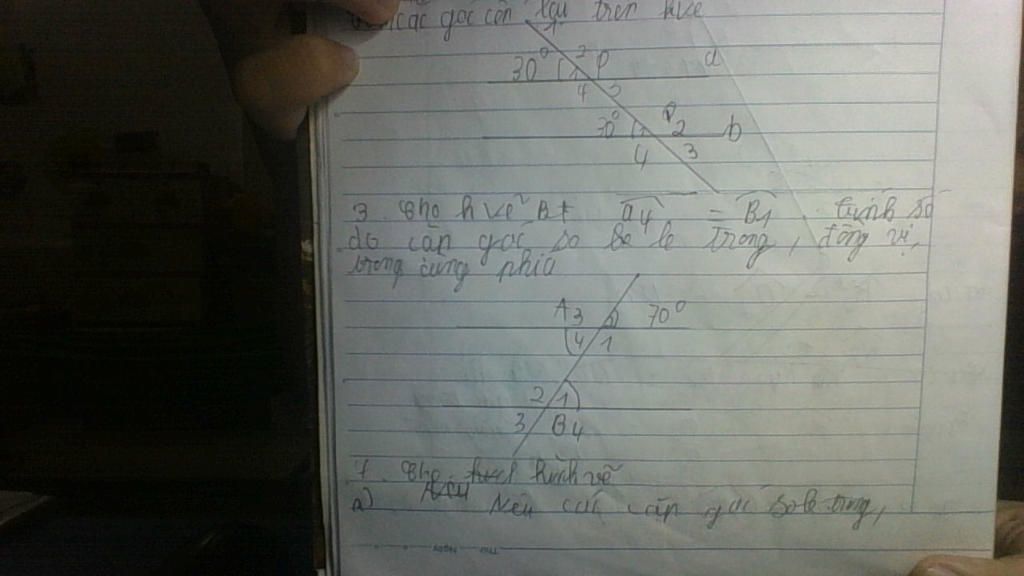 các góc còn lại trên hvẽ
30° 1 2 P a
4 3
30° 1 Q 2 b
4 3
3. Cho h vẽ Bt a4 = B1 tính số
đo cặp góc so le trong, đồng vị,
trong cùng phía
A 3 2 70°
4 1
2 1
3 B 4
Cho hình vẽ
a) Nêu các cặp góc sole trong,
Thứ Ngày